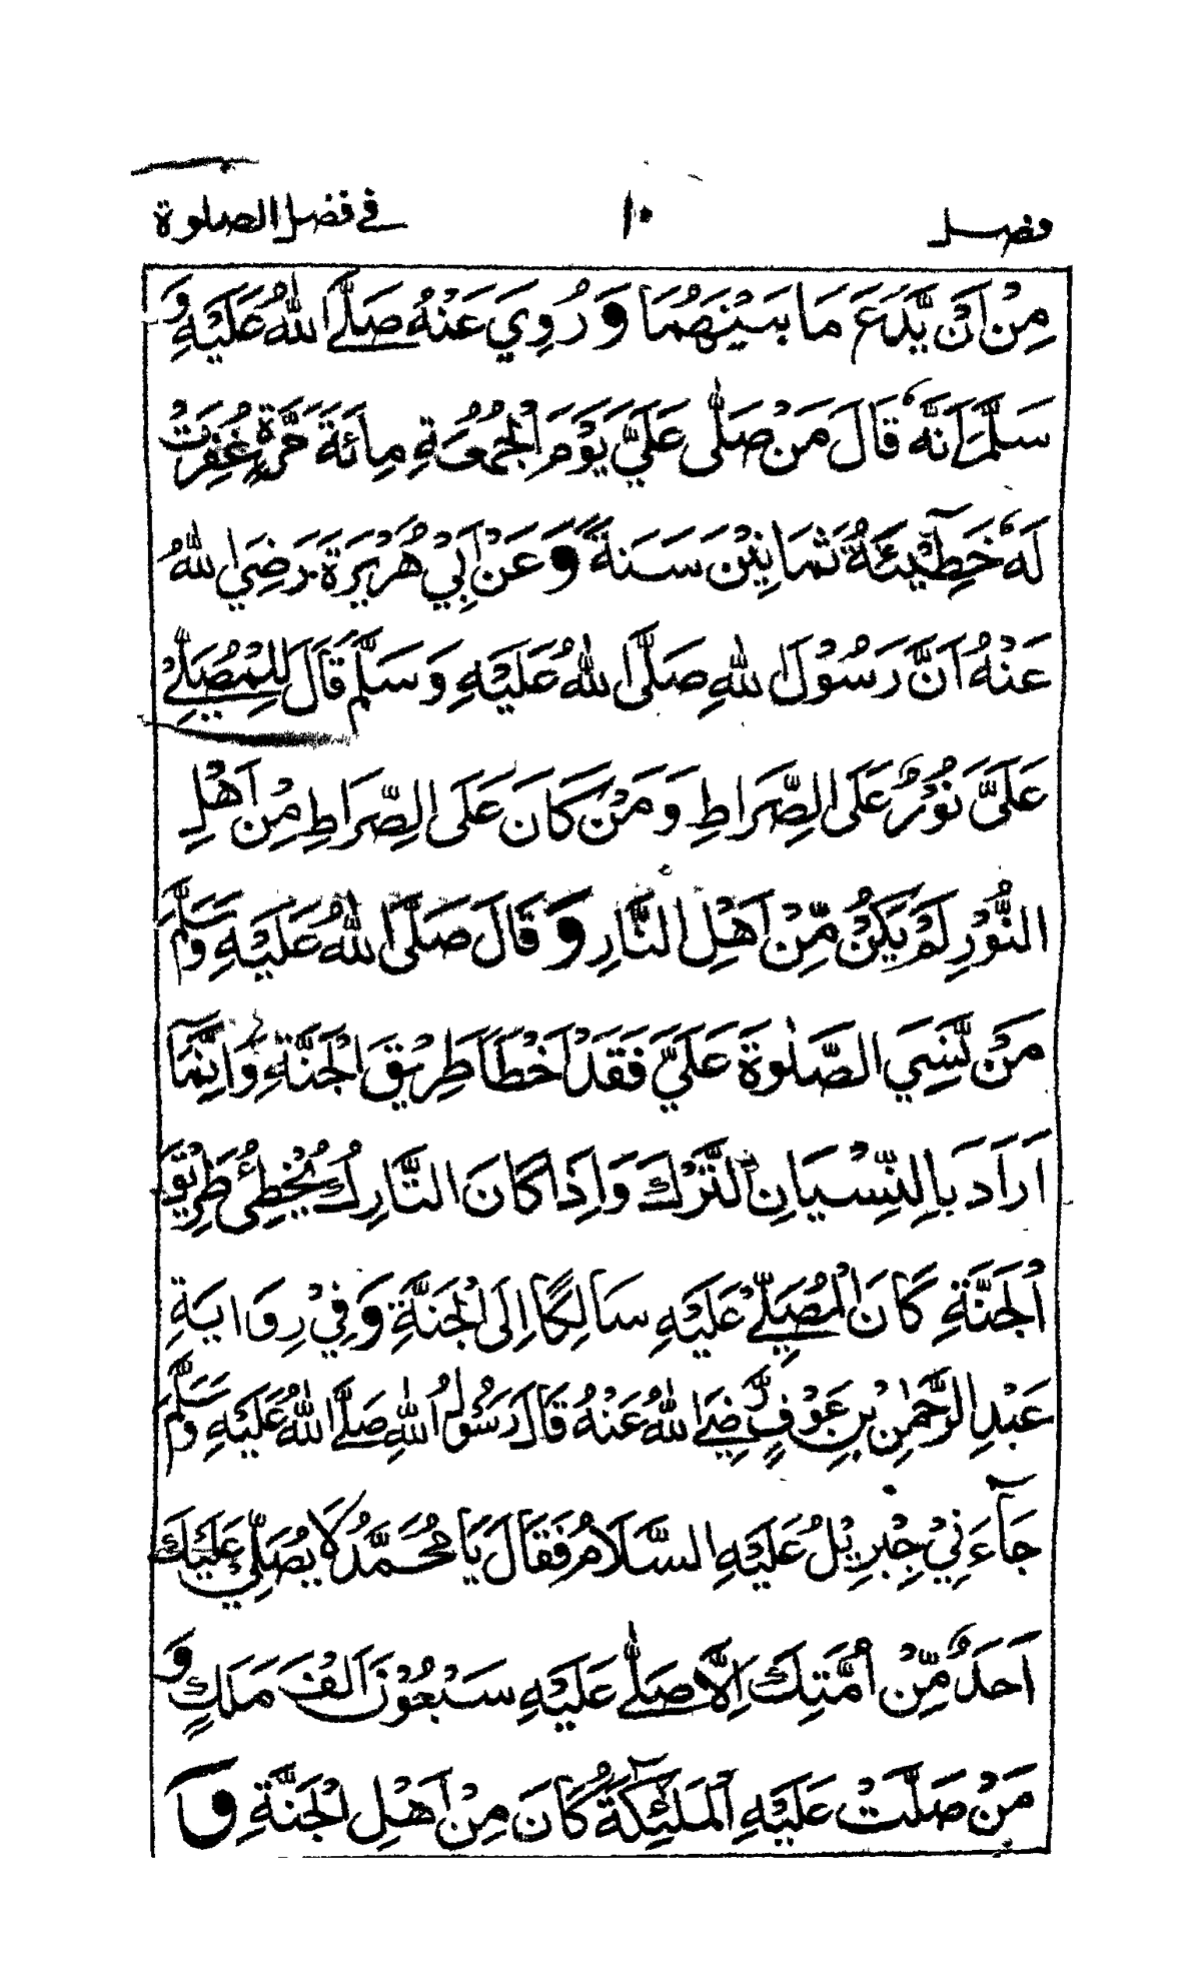 فصل ١٠ في فضل الصلوة
مِنْ اَنْ يَّدَعَ مَا بَيْنَهُمَا وَرُوِيَ عَنْهُ صَلَّى اللّٰهُ عَلَيْهِ وَ
سَلَّمَ اَنَّهٗ قَالَ مَنْ صَلّٰى عَلَيَّ يَوْمَ الْجُمُعَةِ مِائَةَ مَرَّةٍ غُفِرَتْ
لَهٗ خَطِيْٓئَةُ ثَمَانِيْنَ سَنَةً وَعَنْ اَبِيْ هُرَيْرَةَ رَضِيَ اللّٰهُ
عَنْهُ اَنَّ رَسُوْلَ اللّٰهِ صَلَّى اللّٰهُ عَلَيْهِ وَسَلَّمَ قَالَ لِلْمُصَلِّيْ
عَلَيَّ نُوْرٌ عَلَى الصِّرَاطِ وَمَنْ كَانَ عَلَى الصِّرَاطِ مِنْ اَهْلِ
النُّوْرِ لَمْ يَكُنْ مِّنْ اَهْلِ النَّارِ وَقَالَ صَلَّى اللّٰهُ عَلَيْهِ وَسَلَّمَ
مَنْ نَّسِيَ الصَّلٰوةَ عَلَيَّ فَقَدْ اَخْطَاَ طَرِيْقَ الْجَنَّةِ وَاِنَّمَآ
اَرَادَ بِالنِّسْيَانِ التَّرْكَ وَاِذَا كَانَ التَّارِكُ يُخْطِئُ طَرِيْقَ
الْجَنَّةِ كَانَ الْمُصَلِّيْ عَلَيْهِ سَالِكًا اِلَى الْجَنَّةِ وَفِيْ رِوَايَةِ
عَبْدِ الرَّحْمٰنِ بْنِ عَوْفٍ رَّضِيَ اللّٰهُ عَنْهُ قَالَ رَسُوْلُ اللّٰهِ صَلَّى اللّٰهُ عَلَيْهِ وَسَلَّمَ
جَآءَنِيْ جِبْرِيْلُ عَلَيْهِ السَّلَامُ فَقَالَ يَا مُحَمَّدُ لَا يُصَلِّيْ عَلَيْكَ
اَحَدٌ مِّنْ اُمَّتِكَ اِلَّا صَلّٰى عَلَيْهِ سَبْعُوْنَ اَلْفَ مَلَكٍ وَ
مَنْ صَلَّتْ عَلَيْهِ الْمَلٰٓئِكَةُ كَانَ مِنْ اَهْلِ الْجَنَّةِ وَ